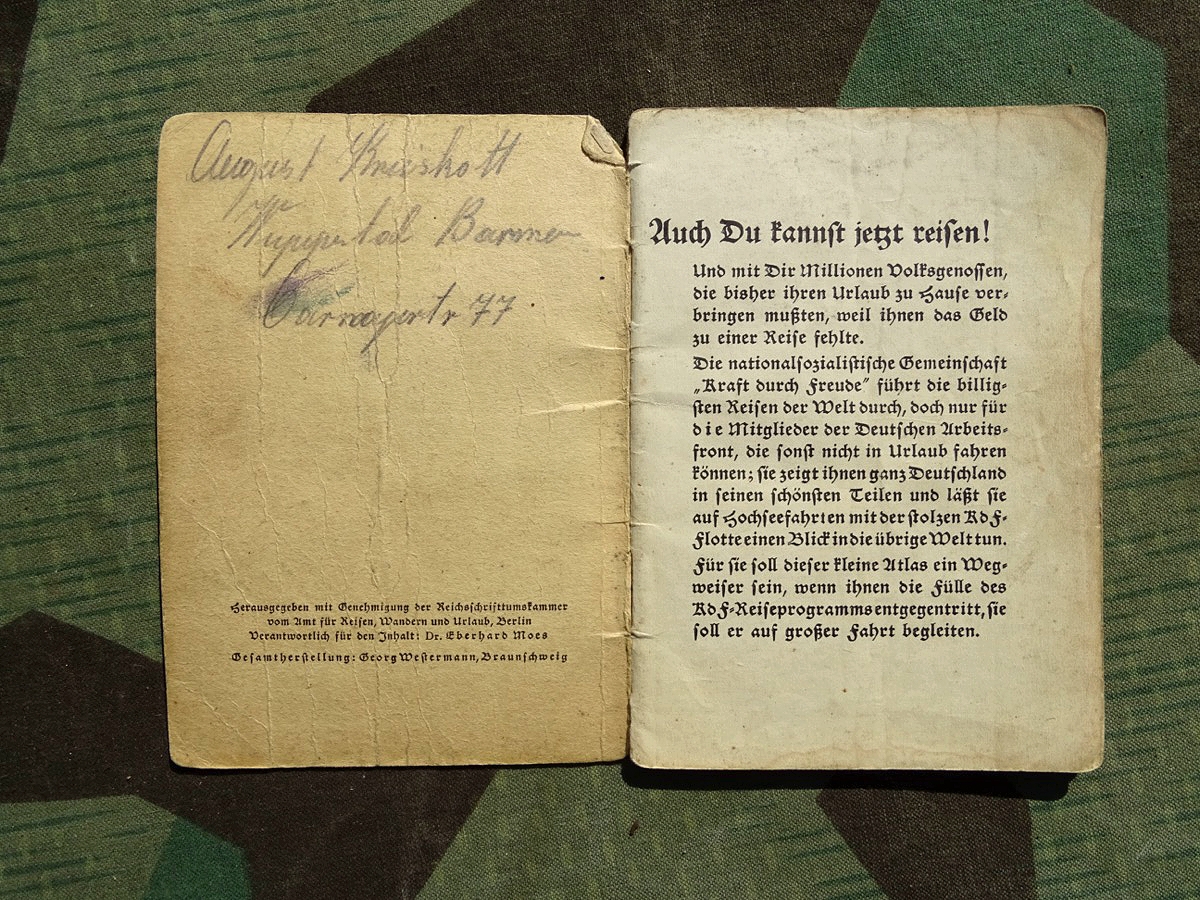 August
Wuppertal Barmen
77
Herausgegeben mit Genehmigung der Reichsschrifttumskammer
vom Amt für Reisen, Wandern und Urlaub, Berlin
Verantwortlich für den Inhalt: Dr. Eberhard Moes
Gesamtherstellung: Georg Westermann, Braunschweig
Auch Du kannst jetzt reisen!
Und mit Dir Millionen Volksgenossen,
die bisher ihren Urlaub zu Hause ver-
bringen mußten, weil ihnen das Geld
zu einer Reise fehlte.
Die nationalsozialistische Gemeinschaft
„Kraft durch Freude“ führt die billig-
sten Reisen der Welt durch, doch nur für
die Mitglieder der Deutschen Arbeits-
front, die sonst nicht in Urlaub fahren
können; sie zeigt ihnen ganz Deutschland
in seinen schönsten Teilen und läßt sie
auf Hochseefahrten mit der stolzen KdF-
Flotte einen Blick in die übrige Welt tun.
Für sie soll dieser kleine Atlas ein Weg-
weiser sein, wenn ihnen die Fülle des
KdF-Reiseprogramms entgegentritt, sie
soll er auf großer Fahrt begleiten.